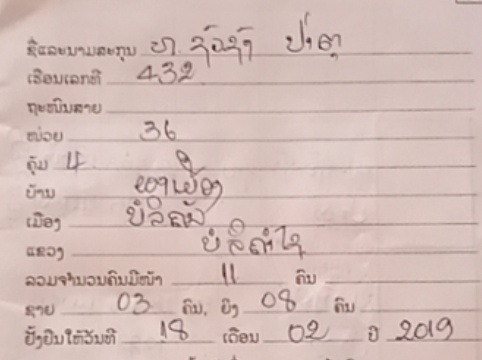 ຊື່ແລະນາມສະກຸນ ທ.
ເຮືອນເລກທີ 432
ຖະໜົນສາຍ
ໜ່ວຍ 36
ຄຸ້ມ 4
ບ້ານ
ເມືອງ ບໍລິຄັນ
ແຂວງ ບໍລິຄຳໄຊ
ລວມຈຳນວນຄົນມີໜ້າ 11 ຄົນ
ຊາຍ 03 ຄົນ, ຍິງ 08 ຄົນ
ຢັ້ງຢືນໃຫ້ວັນທີ 18 ເດືອນ 02 ປີ 2019